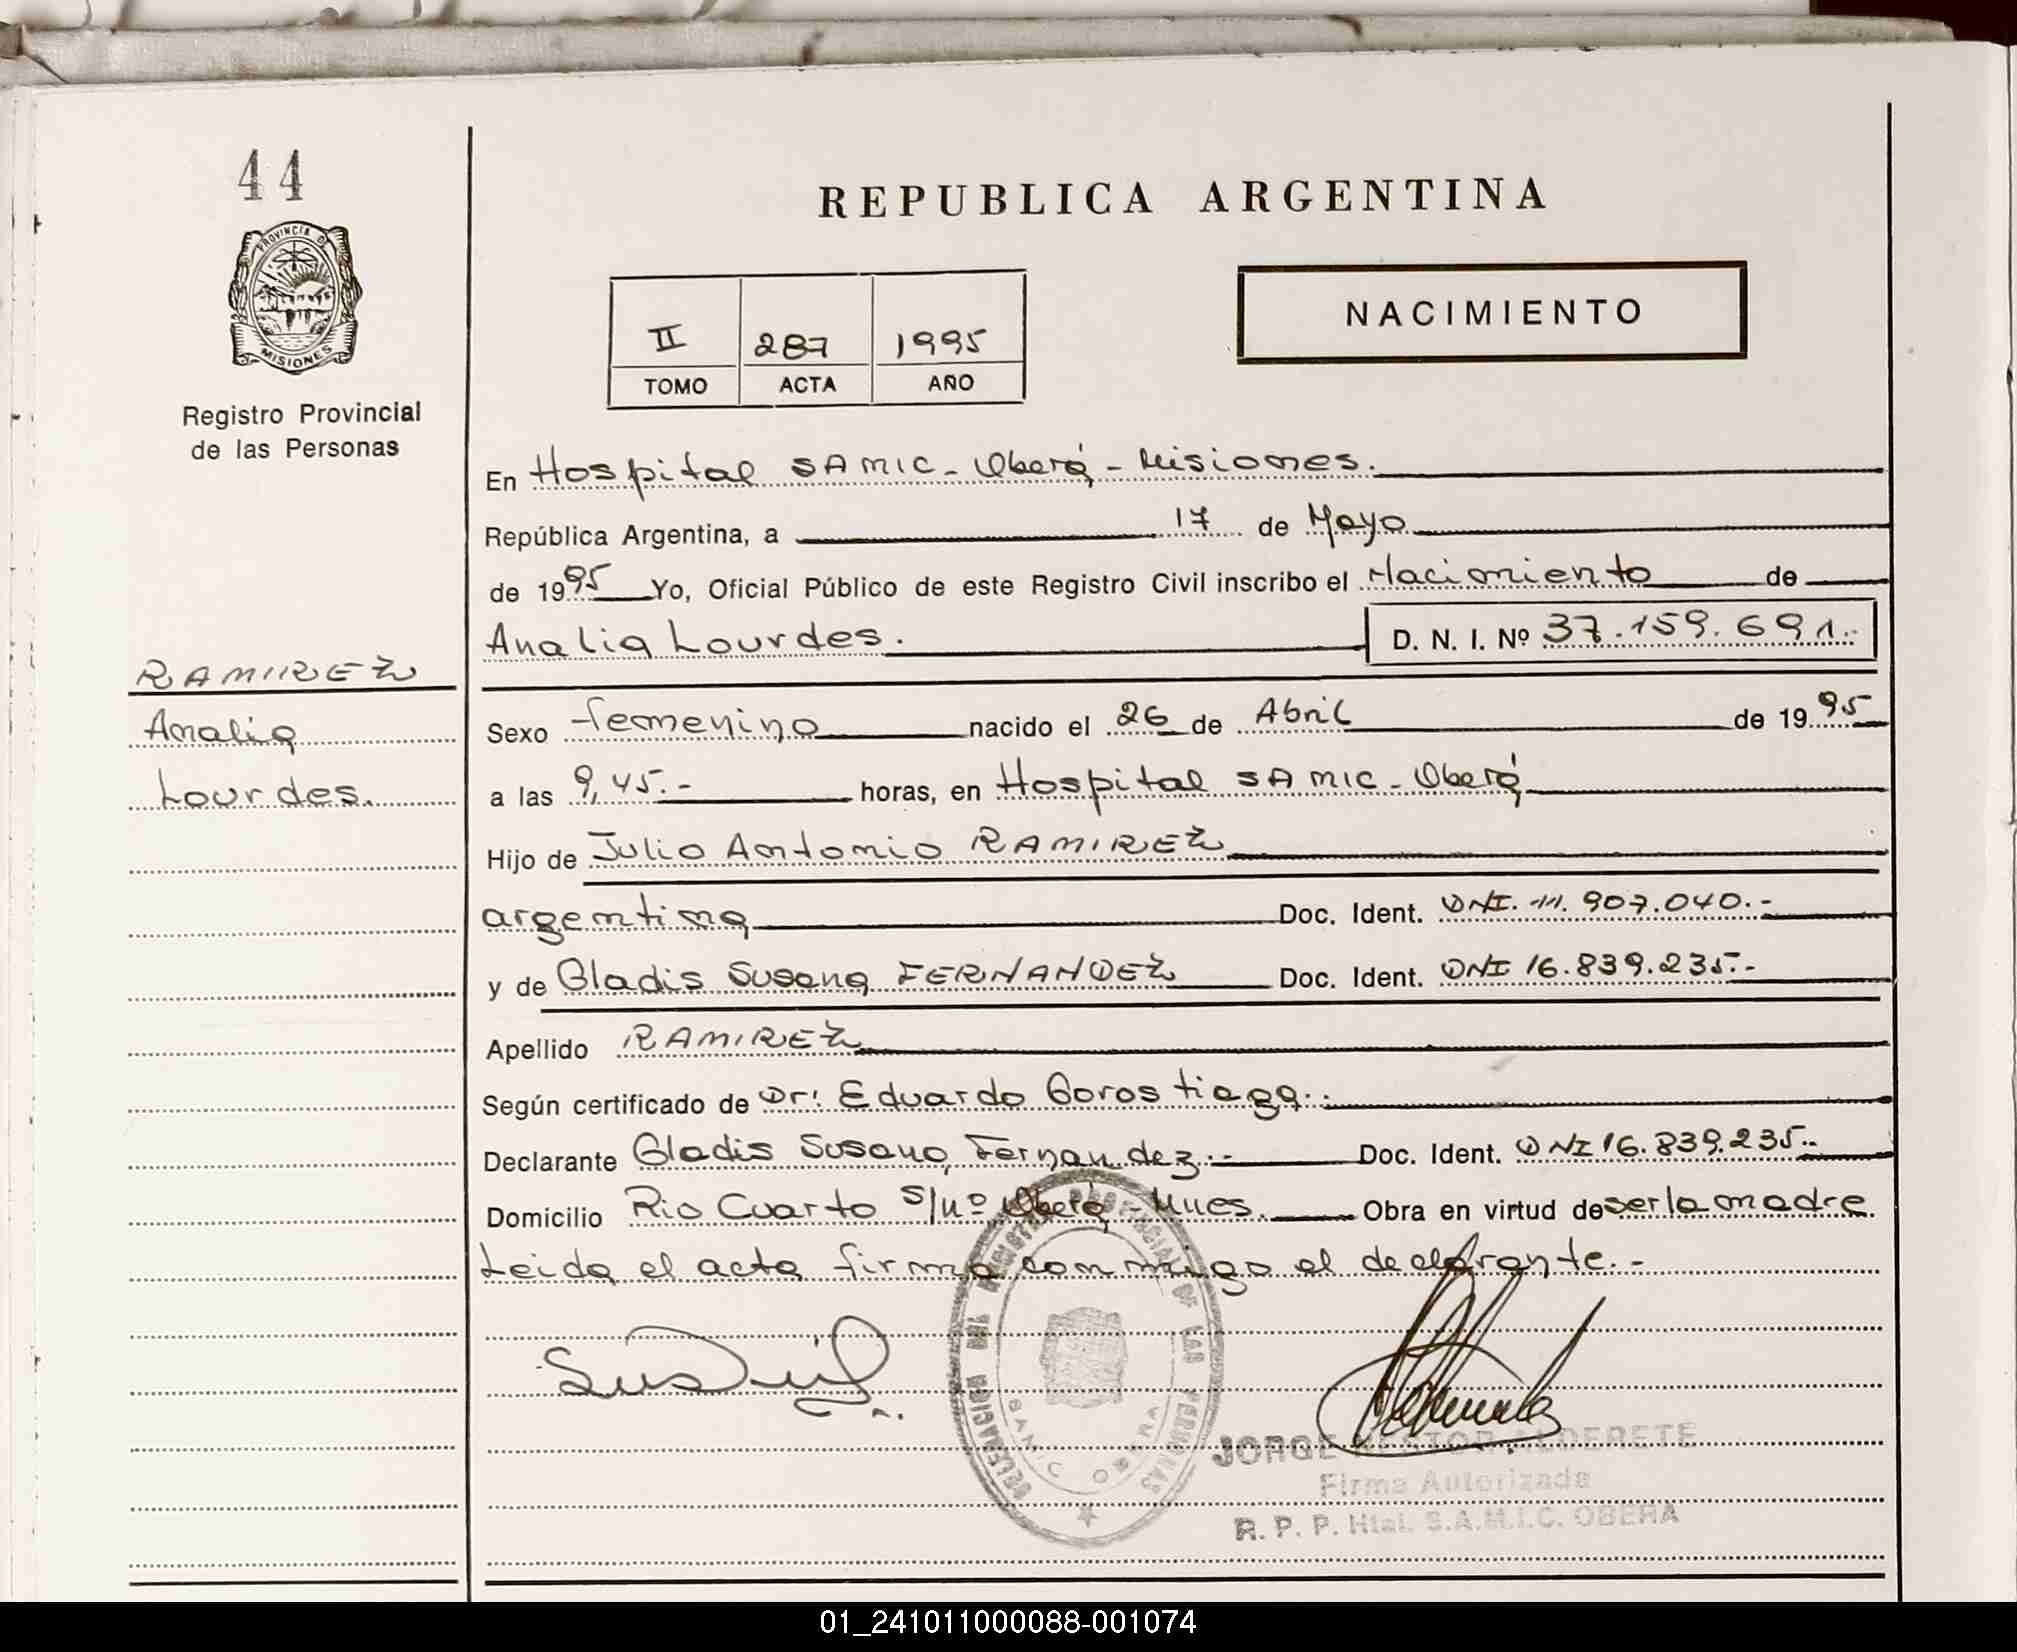 44
PROVINCIA DE
MISIONES
Registro Provincial
de las Personas
RAMIREZ
Analia
Lourdes.
REPUBLICA ARGENTINA
II 287 1995
TOMO ACTA AÑO
NACIMIENTO
En Hospital SAMIC - Oberá - Misiones.
República Argentina, a 17 de Mayo
de 1995 Yo, Oficial Público de este Registro Civil inscribo el Nacimiento de
Analia Lourdes. D. N. I. Nº 37.159.691.-
Sexo femenino nacido el 26 de Abril de 1995
a las 9,45.- horas, en Hospital SAMIC - Oberá
Hijo de Julio Antonio RAMIREZ
argentina Doc. Ident. DNI. 11.907.040.-
y de Gladis Susana FERNANDEZ Doc. Ident. DNI 16.839.235.-
Apellido RAMIREZ
Según certificado de Dr: Eduardo Gorostiaga.
Declarante Gladis Susana Fernandez.- Doc. Ident. DNI 16.839.235.-
Domicilio Rio Cuarto S/Nº Oberá - Mnes. Obra en virtud de ser la madre
Leida el acta firma conmigo el declarante.-
DELEGACION DEL REGISTRO PROVINCIAL DE LAS PERSONAS
SAMIC OBERA
JORGE NESTOR ALDERETE
Firma Autorizada
R. P. P. Htal. S.A.M.I.C. OBERA
01_241011000088-001074